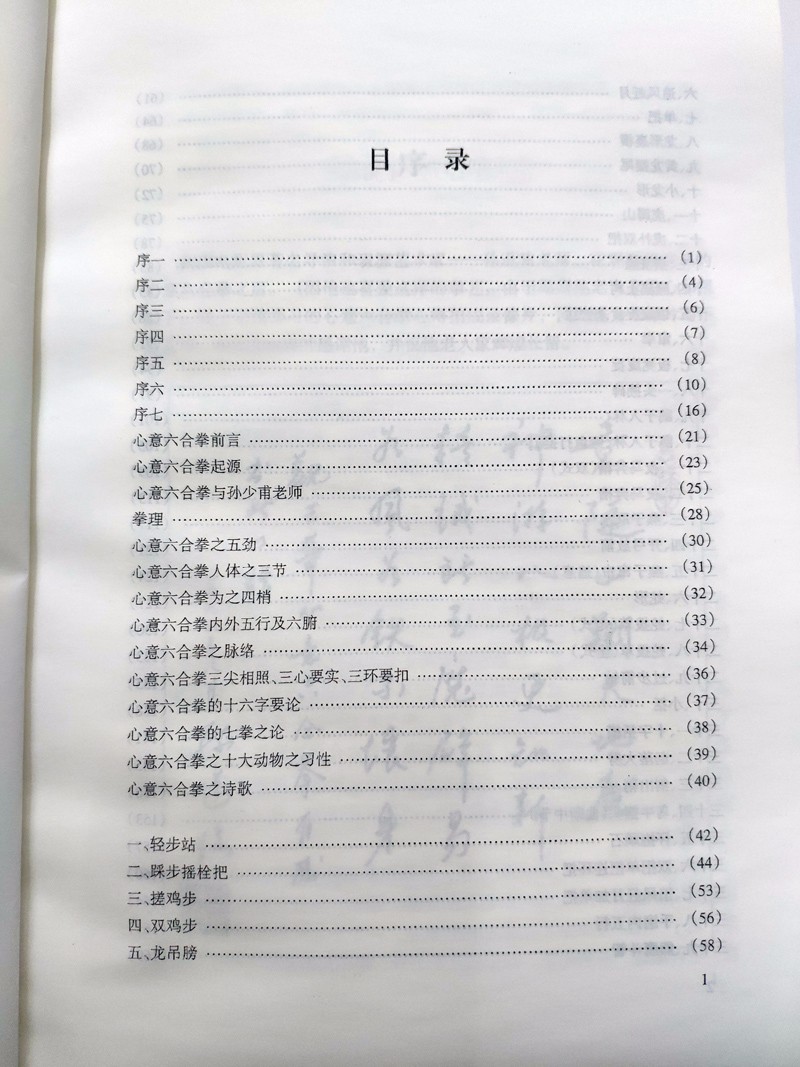 目 录
序一 ………………………………………… (1)
序二 ………………………………………… (4)
序三 ………………………………………… (6)
序四 ………………………………………… (7)
序五 ………………………………………… (8)
序六 ………………………………………… (10)
序七 ………………………………………… (16)
心意六合拳前言 ………………………………………… (21)
心意六合拳起源 ………………………………………… (23)
心意六合拳与孙少甫老师 ………………………………………… (25)
拳理 ………………………………………… (28)
心意六合拳之五劲 ………………………………………… (30)
心意六合拳人体之三节 ………………………………………… (31)
心意六合拳为之四梢 ………………………………………… (32)
心意六合拳内外五行及六腑 ………………………………………… (33)
心意六合拳之脉络 ………………………………………… (34)
心意六合拳三尖相照、三心要实、三环要扣 ………………………………………… (36)
心意六合拳的十六字要论 ………………………………………… (37)
心意六合拳的七拳之论 ………………………………………… (38)
心意六合拳之十大动物之习性 ………………………………………… (39)
心意六合拳之诗歌 ………………………………………… (40)
一、轻步站 ………………………………………… (42)
二、踩步摇栓把 ………………………………………… (44)
三、搓鸡步 ………………………………………… (53)
四、双鸡步 ………………………………………… (56)
五、龙吊膀 ………………………………………… (58)
1